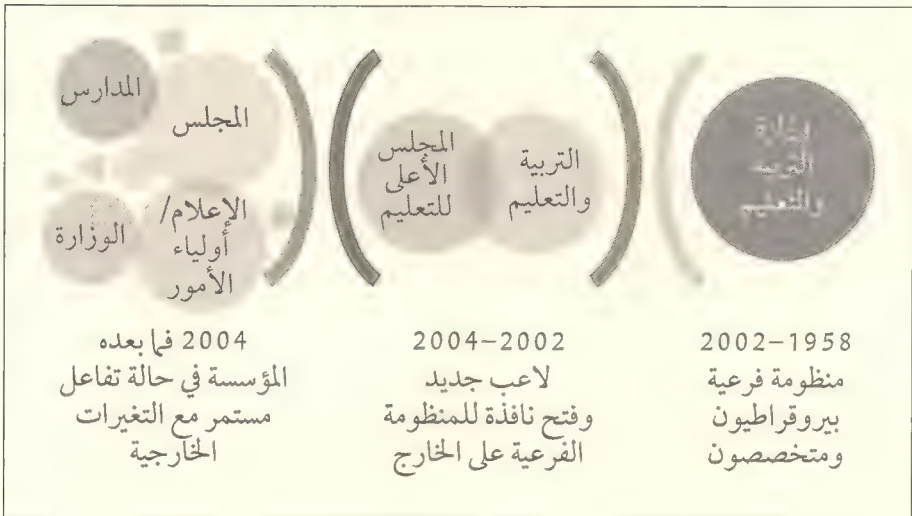 وزارة
التربية
والتعليم
1958–2002
منظومة فرعية
بيروقراطيون
ومتخصصون
التربية
والتعليم
المجلس
الأعلى
للتعليم
2002–2004
لاعب جديد
وفتح نافذة للمنظومة
الفرعية على الخارج
المدارس
المجلس
الإعلام/
أولياء
الأمور
الوزارة
2004 فما بعده
المؤسسة في حالة تفاعل
مستمر مع التغيرات
الخارجية